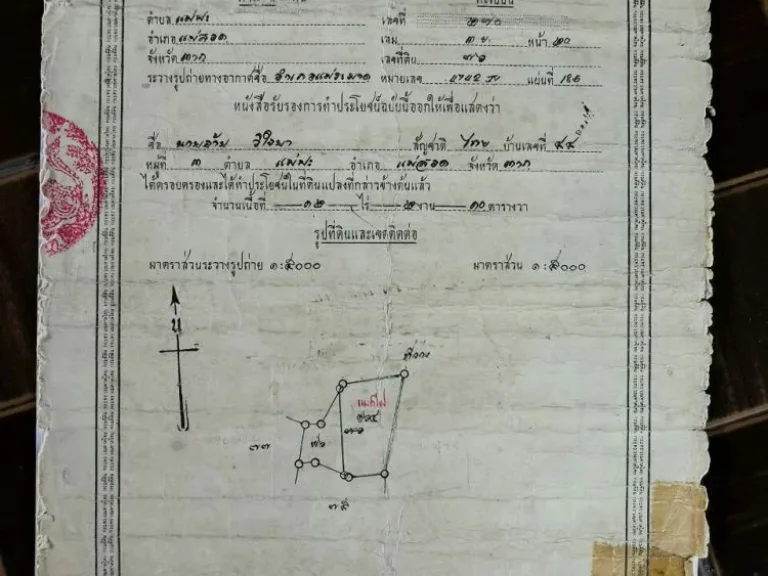 ตำบล แม่ปะ เลขที่ ๒๗๐
อำเภอ แม่สอด เล่ม ๓ ข. หน้า ๒๐
จังหวัด ตาก เลขที่ดิน ๗๖
ระวางรูปถ่ายทางอากาศชื่อ อำเภอแม่ระมาด หมายเลข แผ่นที่ 186
หนังสือรับรองการทำประโยชน์ฉบับนี้ออกให้เพื่อแสดงว่า
ชื่อ สัญชาติ ไทย บ้านเลขที่ ๔๔
หมู่ที่ ๓ ตำบล แม่ปะ อำเภอ แม่สอด จังหวัด ตาก
ได้ครอบครองและได้ทำประโยชน์ในที่ดินแปลงที่กล่าวข้างต้นแล้ว
จำนวนเนื้อที่ ๑๒ ไร่ ๒ งาน ๑๐ ตารางวา
รูปที่ดินและเขตติดต่อ
มาตราส่วนระวางรูปถ่าย ๑:๕๐๐๐ มาตราส่วน ๑:๕๐๐๐
น
ที่ว่าง
๗๖
๗๗
๗๕